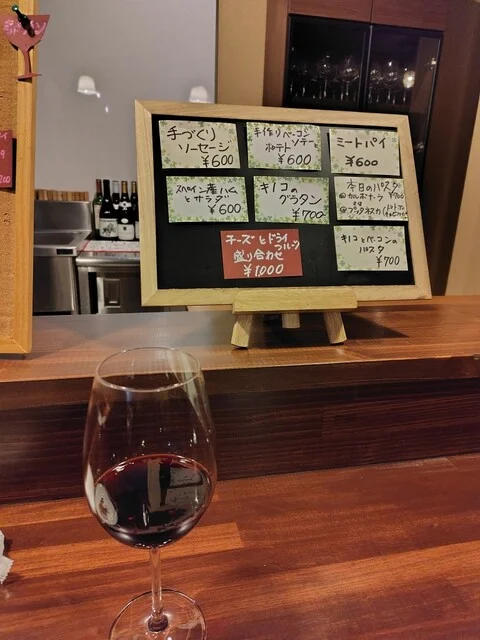 手づくり
ソーセージ
¥600
手作りベーコン
ポテトソテー
¥600
ミートパイ
¥600
スペイン産ハム
とサラダ
¥600
キノコの
グラタン
¥700
本日のパスタ
カルボナーラ ¥700
チーズとドライ
フルーツ
盛り合わせ
¥1000
キノコとベーコンの
パスタ
¥700